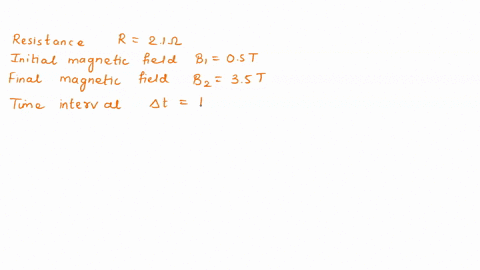 Resistance R = 2.1Ω
Initial magnetic field B₁ = 0.5T
Final magnetic field B₂ = 3.5T
Time interval Δt = 1